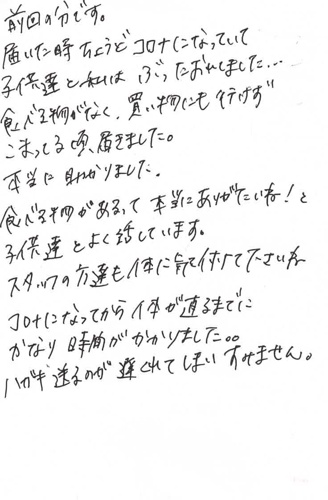 前回の分です。
届いた時ちょうどコロナになっていて
子供達と私は ぶったおれました…
食べる物がなく、買い物にも行けず
こまってる頃、届きました。
本当に助かりました。
食べる物があるって本当にありがたいね！と
子供達とよく話しています。
スタッフの方達も体に気を付けて下さいね
コロナになってから体が直るまでに
かなり時間がかかりました。。
ハガキ送るのが遅くれてしまいすみません。